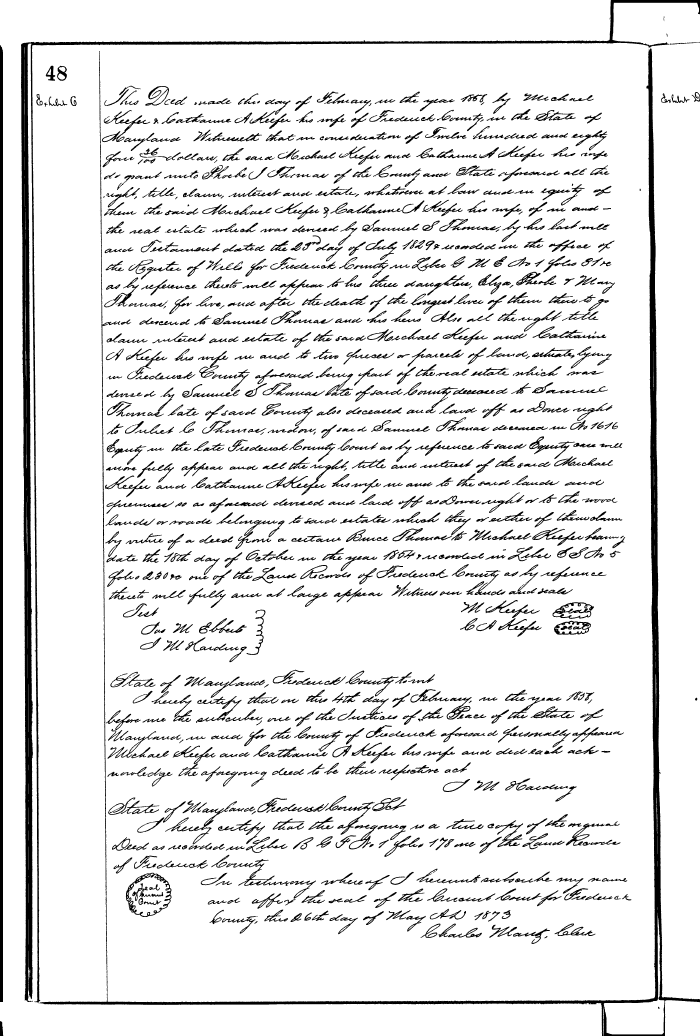 48
Exhibit C
This Deed made this day of February, in the year 1858, by Michael
Keefer & Catharine A Keefer his wife of Frederick County, in the State of
Maryland Witnesseth that in consideration of Twelve hundred and eighty
four 36/100 dollars, the said Michael Keefer and Catharine A Keefer his wife
do grant unto Phoebe J Thomas of the County and State aforesaid all the
right, title, claim, interest and estate, whatsoever at law and in equity of
them the said Michael Keefer & Catharine A Keefer his wife, of in and
the real estate which was devised by Samuel S Thomas, by his last will
and Testament dated the 23d day of July 1829 & recorded in the office of
the Register of Wills for Frederick County in Liber G M E No 1 folio 31 &c
as by reference thereto will appear to his three daughters, Eliza, Pheobe & Mary
Thomas, for live, and after the death of the longest liver of them then to go
and descend to Samuel Thomas and his heirs Also all the right, title
claim interest and estate of the said Michael Keefer and Catharine
A Keefer his wife in and to two pieces or parcels of land, situate, lying
in Frederick County aforesaid being part of the real estate which was
devised by Samuel S Thomas late of said County deceased to Samuel
Thomas late of said County also deceased and laid off as Dower right
to Juliet C Thomas, widow, of said Samuel Thomas deceased in No 1616
Equity in the late Frederick County Court as by reference to said Equity case will
more fully appear and all the right, title and interest of the said Michael
Keefer and Catharine A Keefer his wife in and to the said lands and
premises so as aforesaid devised and laid off as Dower right or to the wood
lands or roads belonging to said estates which they or either of them claim
by virtue of a deed from a certain Thomas to Michael Keefer bearing
date the 18th day of October in the year 1854 & recorded in Liber E S No 5
folio 230 &c one of the Land Records of Frederick County as by reference
thereto will fully and at large appear Witness our hands and seals
Test M Keefer Seal
Jos M Ebberts C A Keefer Seal
J M Harding
State of Maryland, Frederick County to wit
I hereby certify that on this 4th day of February, in the year 1858,
before me the subscriber, one of the Justices of the Peace of the State of
Maryland, in and for the County of Frederick aforesaid personally appeared
Michael Keefer and Catharine A Keefer his wife and did each ack-
nowledge the aforegoing deed to be their respective act
J M Harding
State of Maryland, Frederick County Sct
I hereby certify that the aforegoing is a true copy of the original
Deed as recorded in Liber B G F No 1 folio 178 one of the Land Records
of Frederick County
Seal of Circuit Court
In testimony whereof I hereunto subscribe my name
and affix the seal of the Circuit Court for Frederick
County, this 26th day of May AD 1873
Charles Mantz, Clerk
Exhibit D